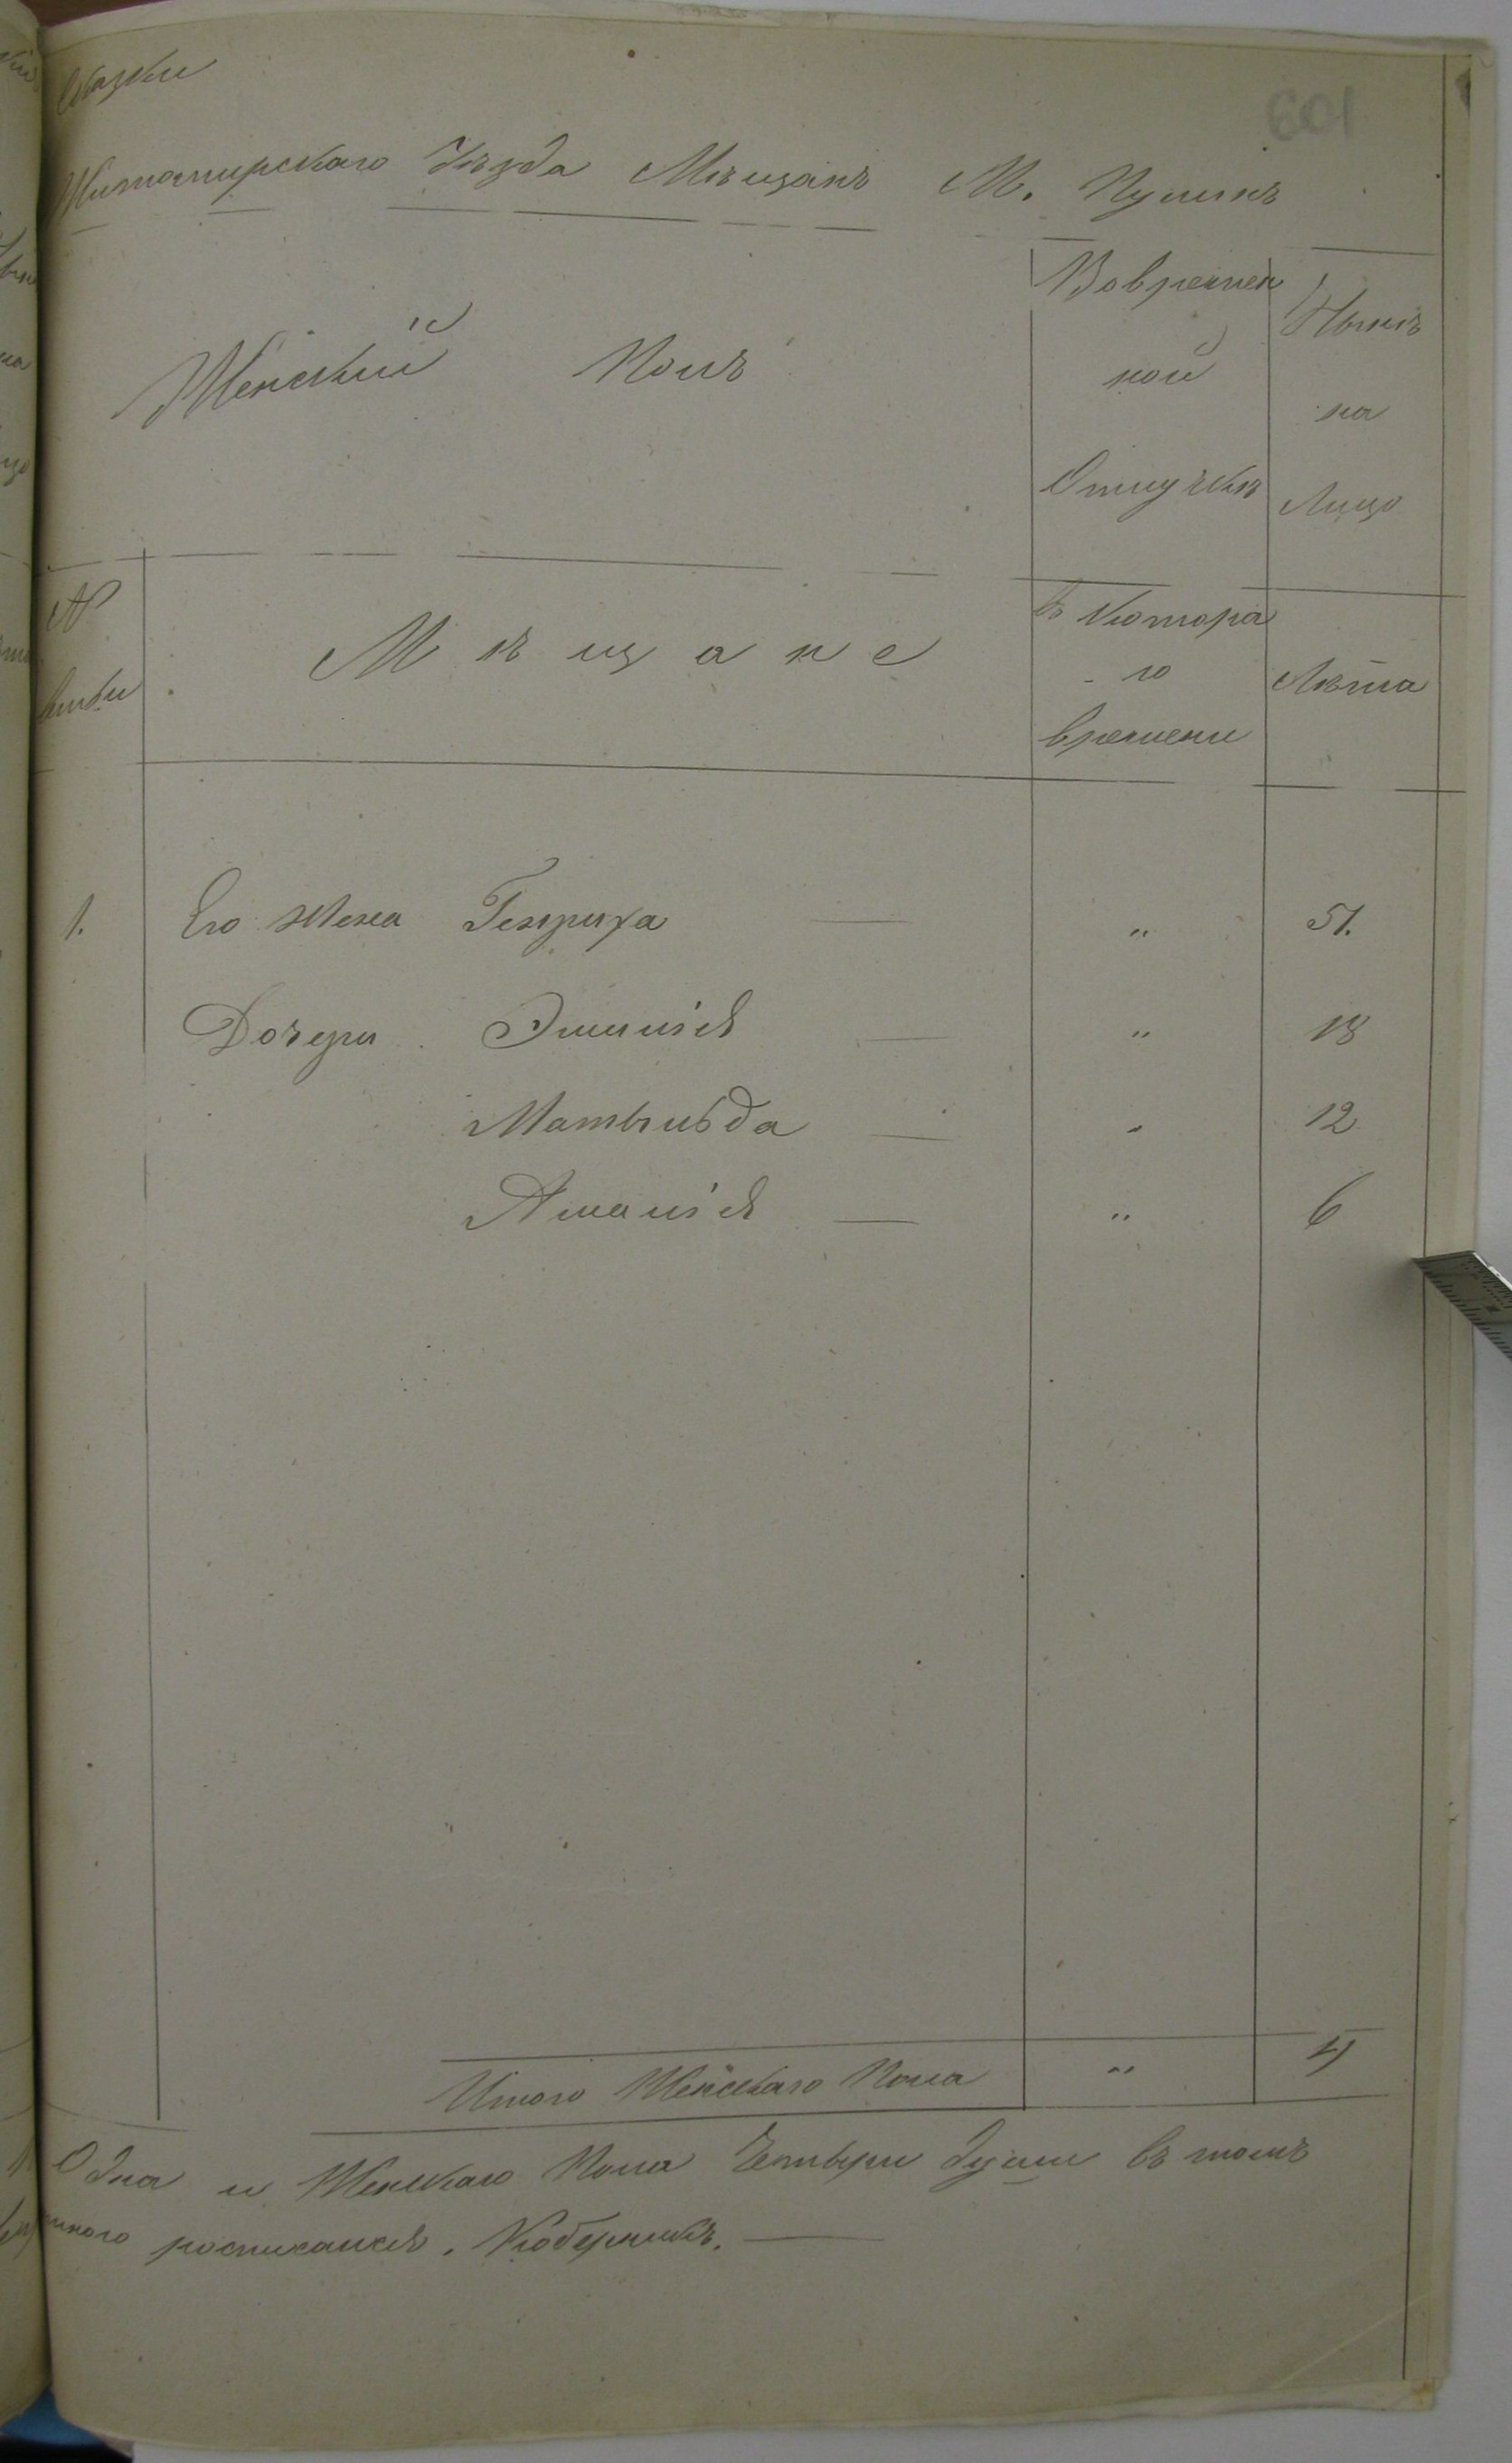 Сказки
601
Житомирскаго Уѣзда Мѣщанъ М. Пулинъ
Женский Полъ
Вовремен
ной
Отлучкѣ
Нынѣ
на
Лицо
№
Мѣщане
Съ котора
го
времени
Лѣта
1. Его жена Генриха — " 51.
Дочери Эмилія — " 18
Матвильда — " 12
Амалія — " 6
Итого Женскаго Пола " 4
Одна и Женскаго Пола Четыри души въ томъ
росписался. Коберникъ. —